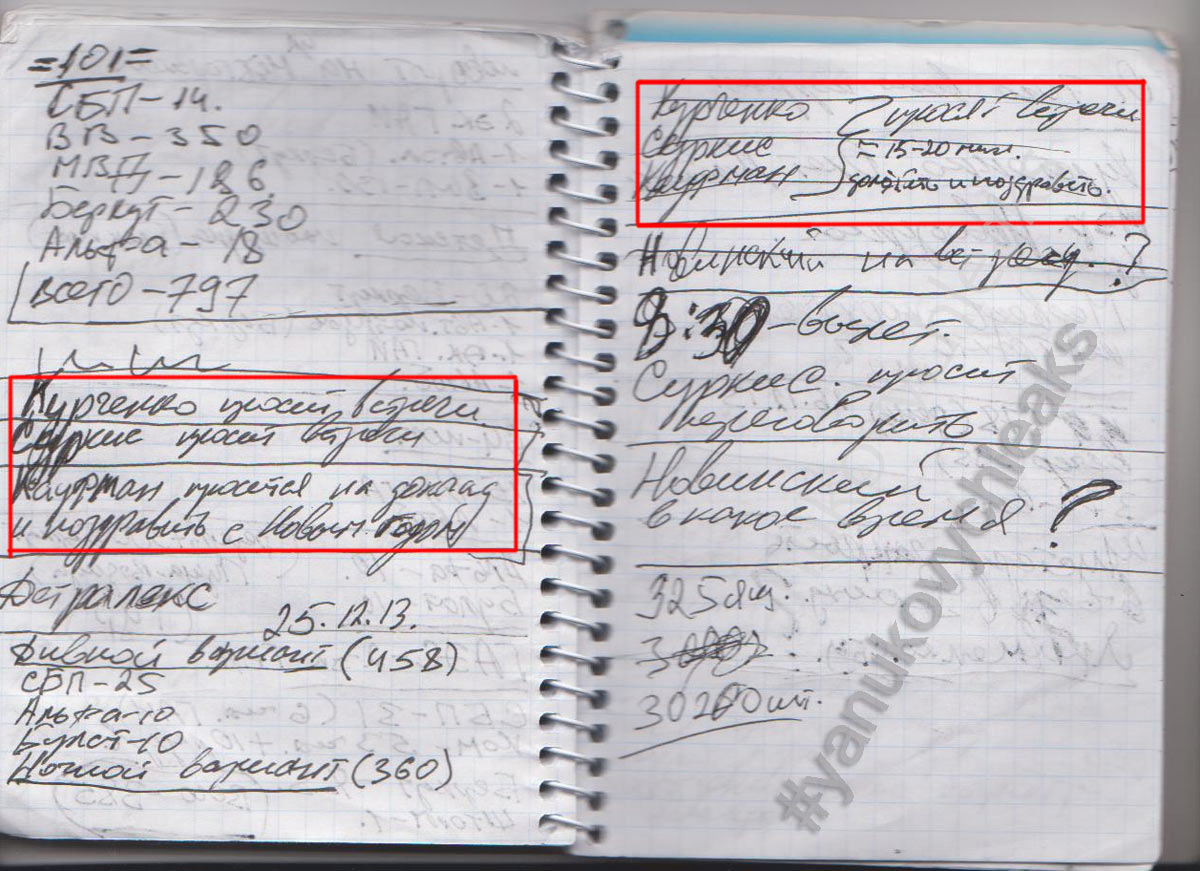 =101=
СБП-14.
ВВ-350
МВД-186.
Беркут-230
Альфа-18
Всего-797
Курченко просит встречи
Суркис просит встречи
Кауфман просится на доклад
и поздравить с Новым годом
Детралекс
25.12.13.
Дивной вариант (458)
СБП-25
Альфа-10
Булат-10
Ночной вариант (360)
Курченко просят встречи
Суркис =15-20 мин.
Кауфман. доложить и поздравить.
Новинский на встречу.?
8:30-вылет.
Суркис. просит
переговорить
Новинский
в какое время?
325ящ.
30200шт.
#yanukovychleaks